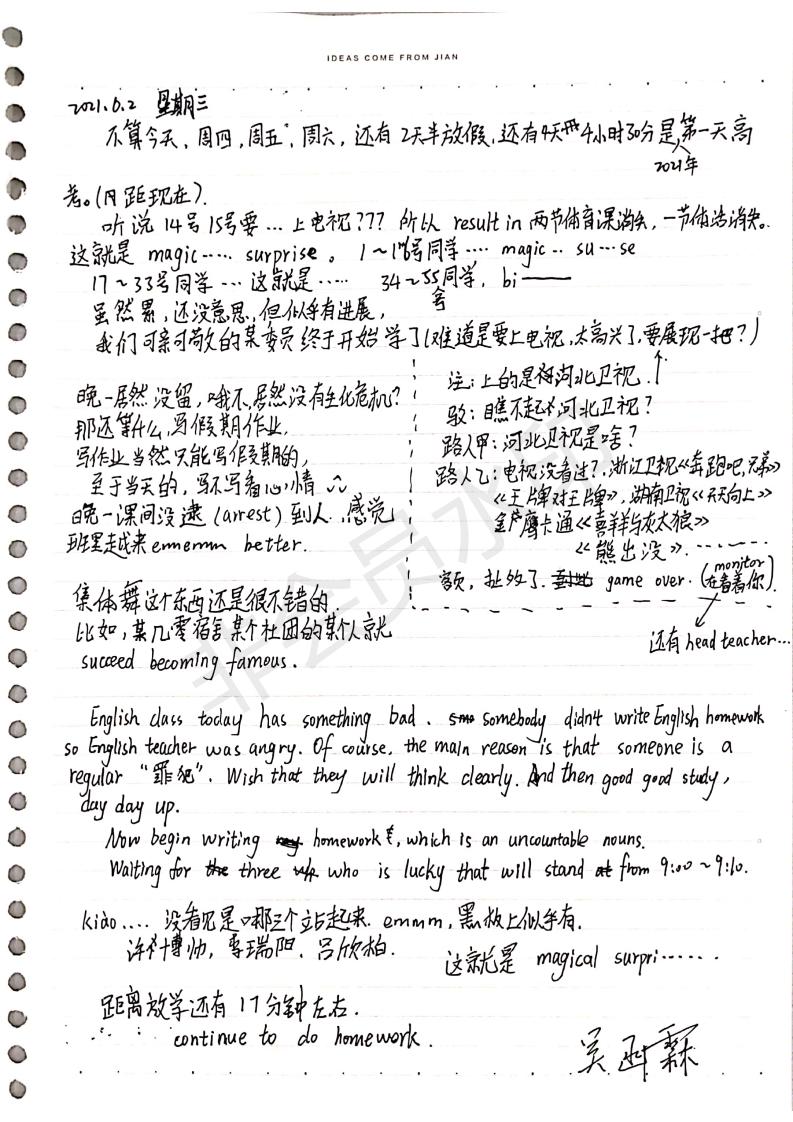 IDEAS COME FROM JIAN
2021.6.2 星期三
不算今天、周四,周五,周六,还有2天半放假,还有4天 4小时30分是第一天高
2021年
考。(月距现在).
听说14号15号要…上电视??? 所以 result in 两节体育课消失,一节体活消失。
这就是 magic…… surprise。 1~16号同学…… magic… su…se
17~33号同学…这就是…… 34~55号同学, bi——
虽然累,还没意思,但似乎有进展,
我们可亲可敬的某委员终于开始学了(难道是要上电视,太高兴了,要展现一把?)
晚一居然没留,哦不,居然没有生化危机?
那还等什么,写假期作业,
写作业当然只能写假期的,
至于当天的,写不写看心情
晚一课间没逮(arrest)到人.感觉
班里越来 ememm better.
集体舞这个东西还是很不错的.
比如,某几零宿舍某个社团的某个人就
succeed becoming famous.
注:上的是河北卫视.
驳:瞧不起河北卫视?
路人甲:河北卫视是啥?
路人乙:电视没看过?,浙江卫视《奔跑吧,兄弟》
《王牌对王牌》,湖南卫视《天天向上》
金鹰卡通《喜羊与灰太狼》
《熊出没》………
额,扯效了. game over. (monitor 在看着你).
还有 head teacher…
English class today has something bad. somebody didn't write English homework
so English teacher was angry. Of course, the main reason is that someone is a
regular “罪犯”. Wish that they will think clearly. And then good good study,
day day up.
Now begin writing homework, which is an uncountable nouns.
Waiting for three who is lucky that will stand from 9:00~9:10.
kiào…. 没看见是哪三个站起来. emmm,黑板上似乎有.
许博帅,李瑞阳.吕欣柏.
这就是 magical surpri……
距离放学还有17分钟左右.
continue to do homework.
非会员水印